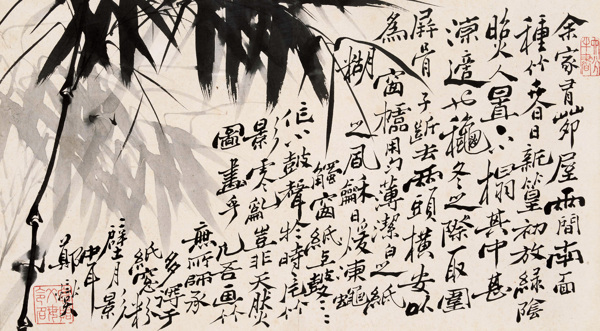 余家有茆屋兩間南面
種竹夏日新篁初放綠陰
照人置一小榻其中甚
涼適也穐冬之際取圍
屏骨子斷去兩頭橫安以
為窗櫺用勻薄潔白之紙
糊之風龢日煖凍蠅
觸窗紙上
作小鼓聲於時一片竹
影零亂豈非天然
圖畫乎凡吾畫竹
無所師承
多得于
紙窗粉
壁月影
中耳
鄭燮